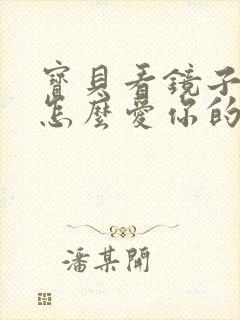 寶貝看鏡子
怎麼愛你的
潘某開